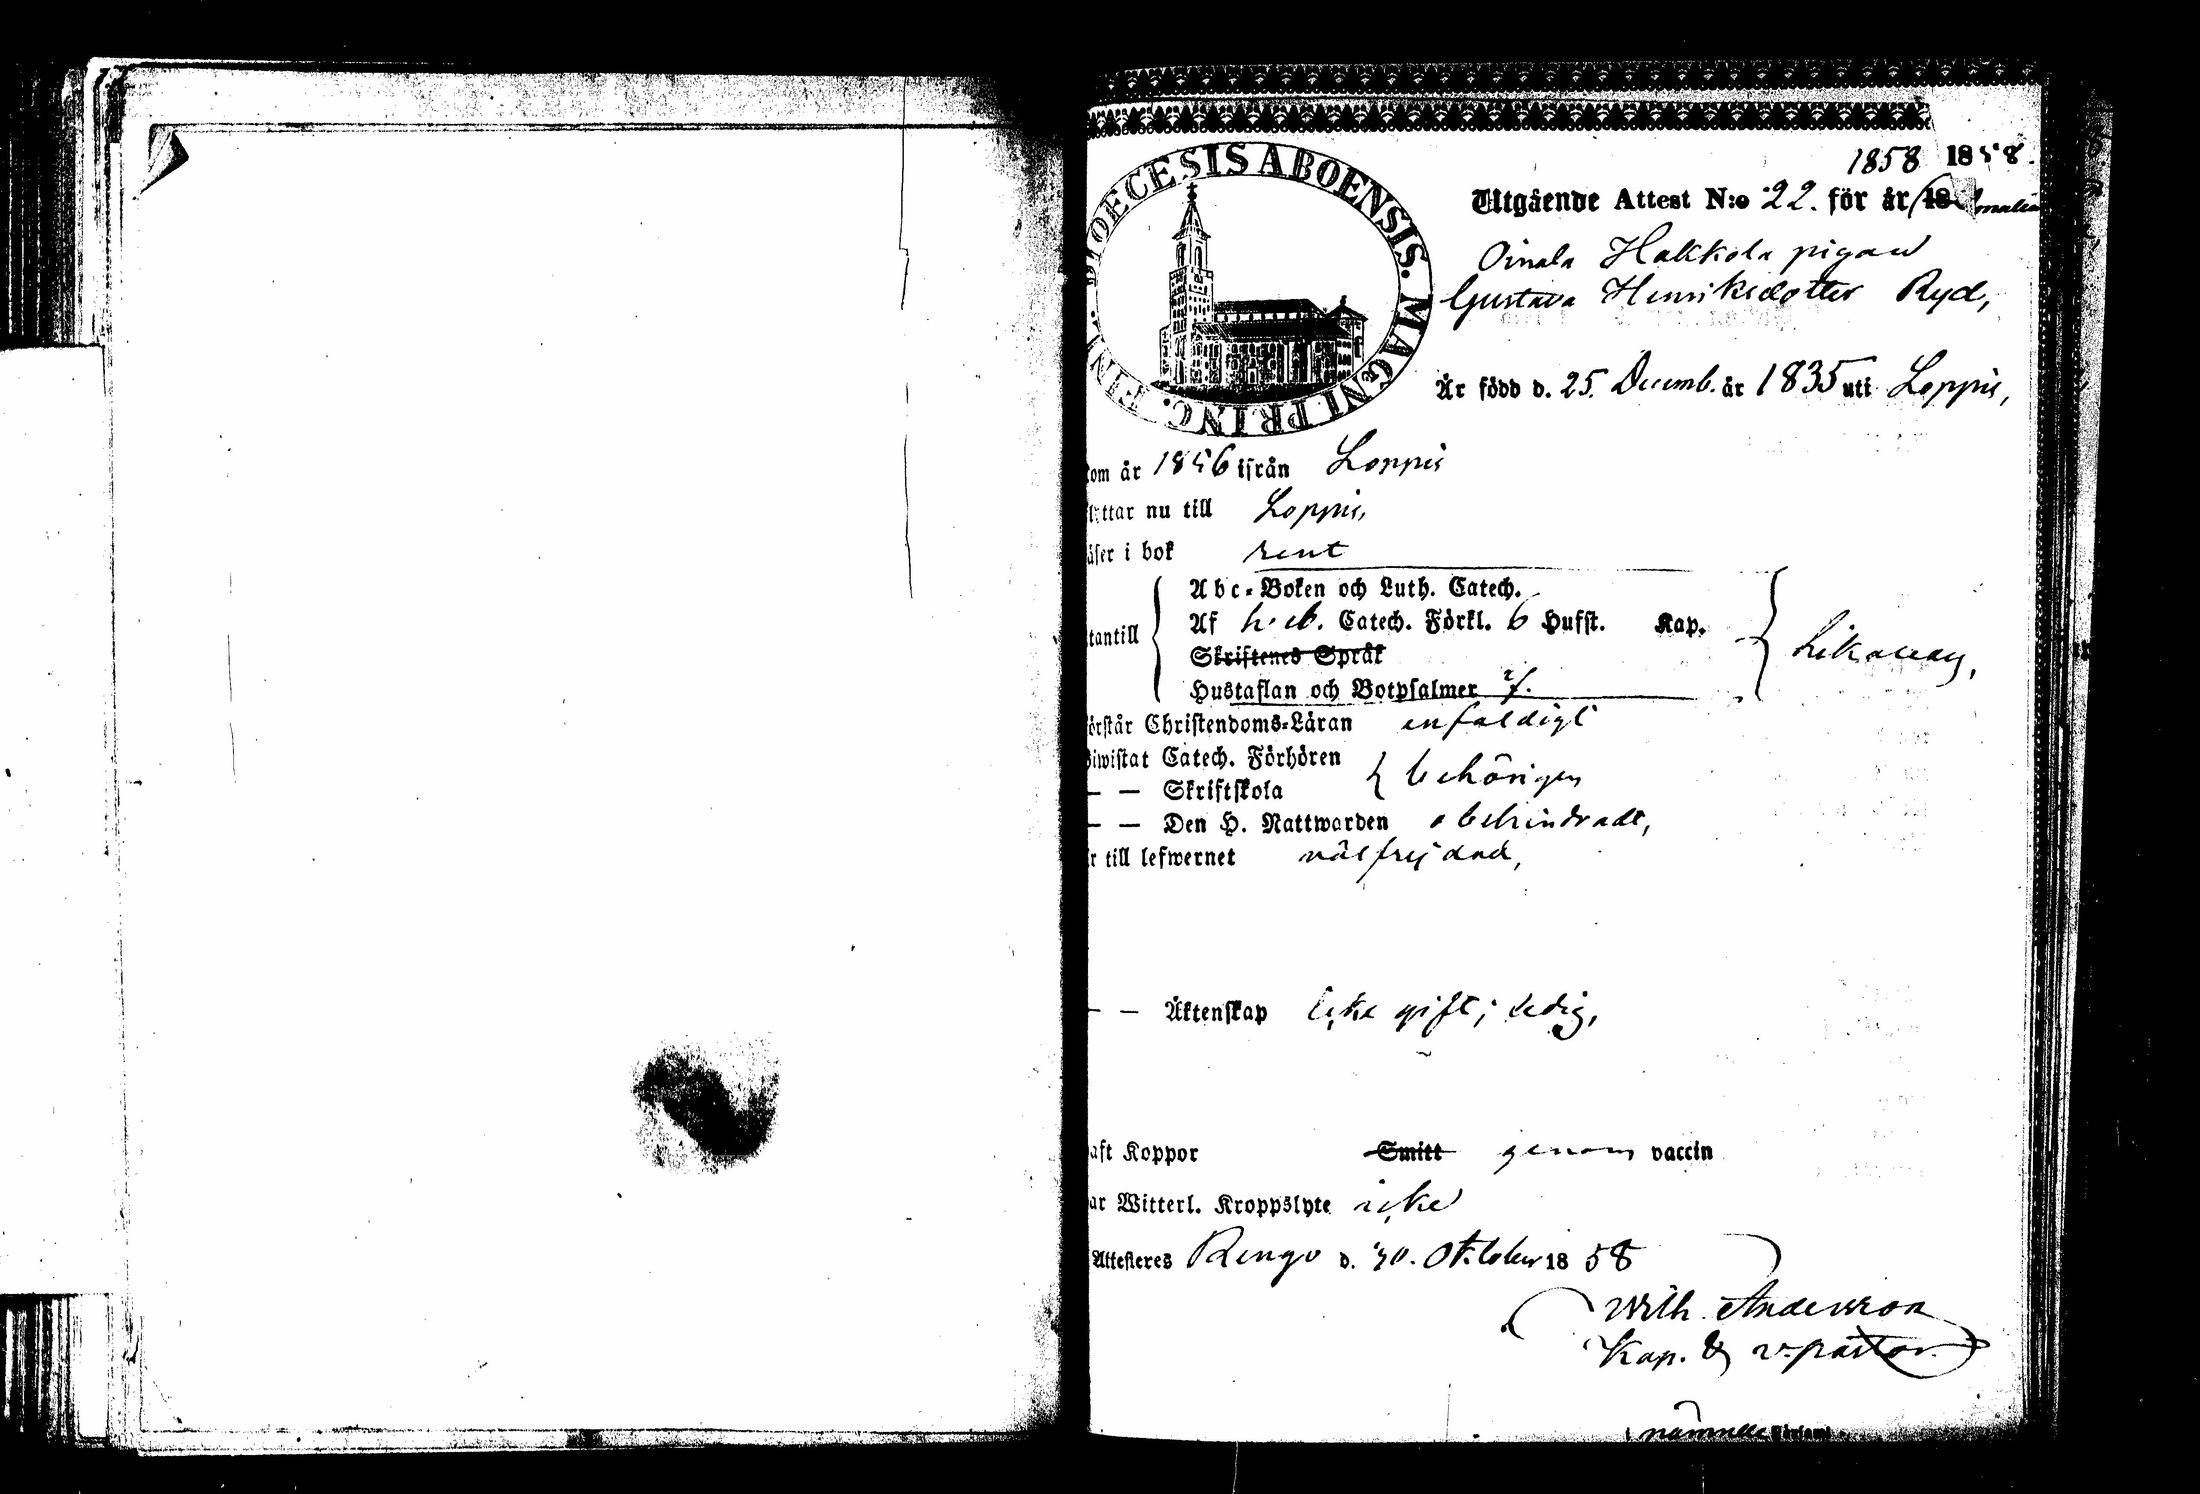 1858 1858.
DIOECESIS ABOENSIS. MAGNI PRINC. FINL.
Utgående Attest N:o 22. för år 18
Oinala Hakkola pigan
Gustava Henriksdotter Ryd,
Är född d. 25. Decemb. år 1835 uti Loppis,
om år 1856 ifrån Loppis
ttar nu till Loppis,
äser i bok rent
Abc-Boken och Luth. Catech.
tantill Af Catech. Förkl. 6 Hufst. Kap. likaväl,
Skriftenes Språk
Hustaflan och Botpsalmer
örstår Christendoms-Läran enfaldigt
iwistat Catech. Förhören
— — Skriftskola behörigen
— — Den H. Nattwarden obehindradt,
r till lefwernet välfrejdad,
— — Äktenskap icke gift; ledig,
aft Koppor Smitt genom vaccin
ar Witterl. Kroppslyte icke
Attesteres Rengo d. 30. Oktober 18 58
Wilh. Andersson
Kap. & v. pastor.
nämnde